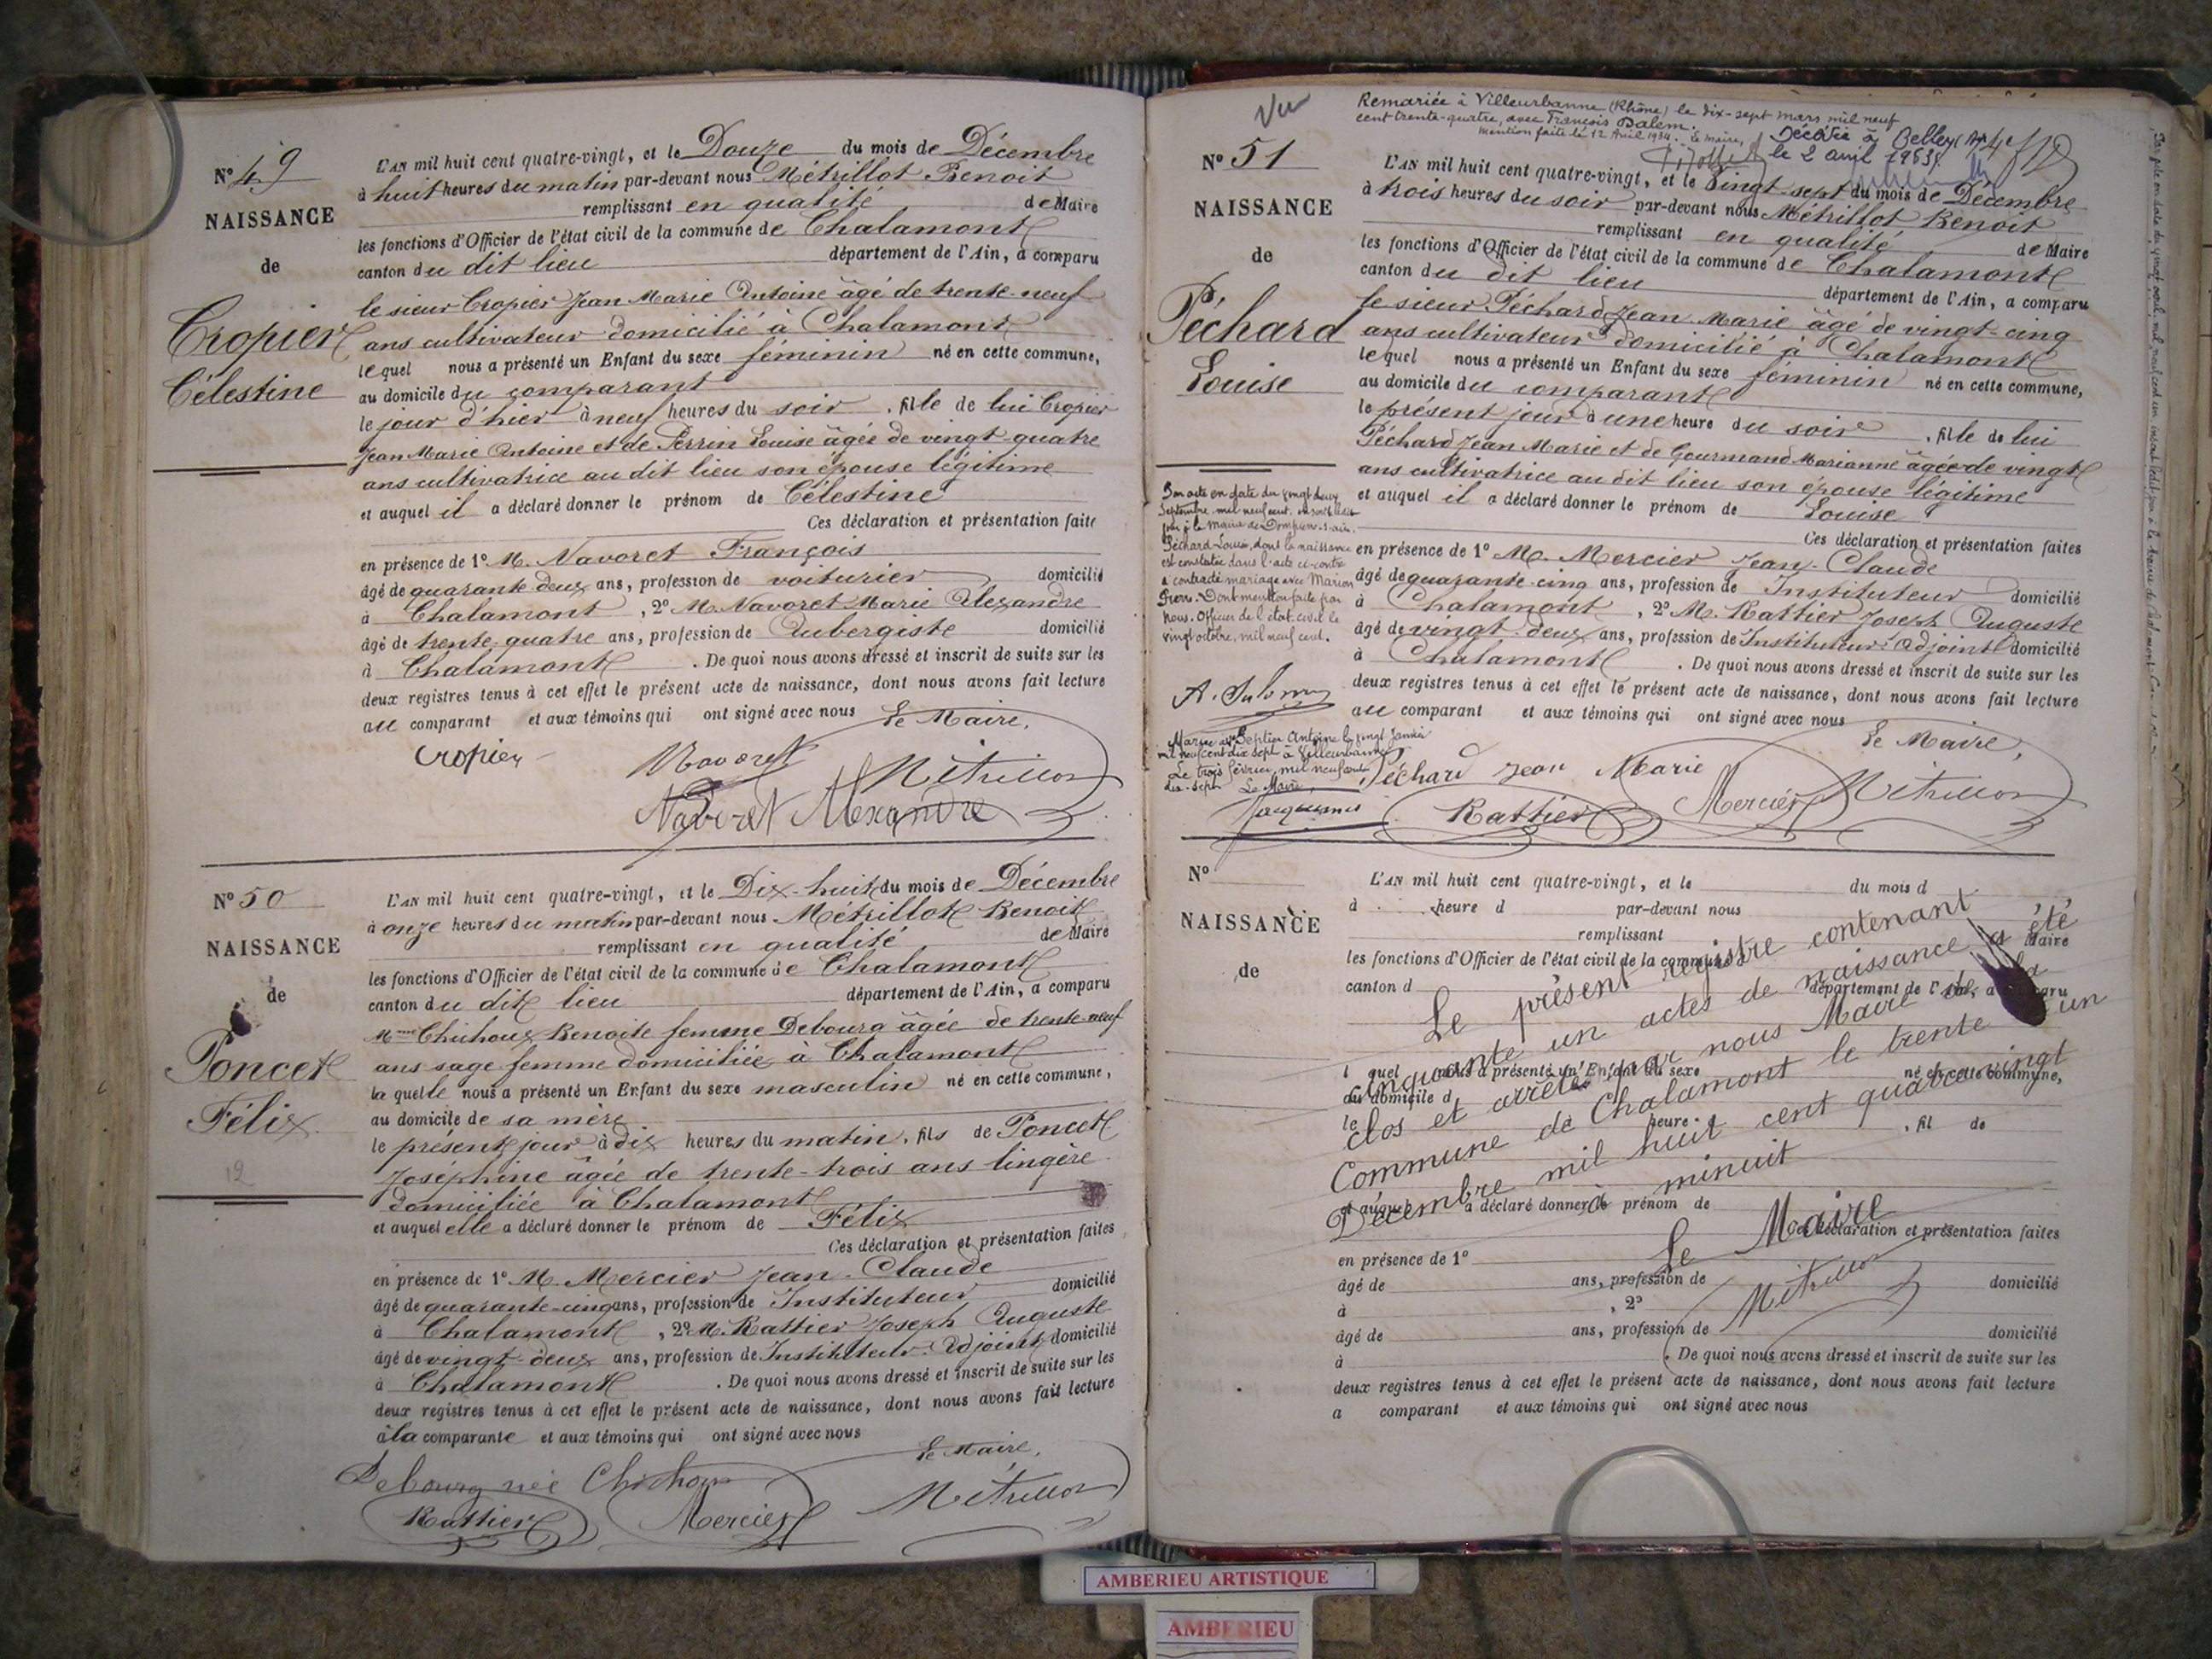 N° 49
NAISSANCE
de
Cropier
Célestine
L'AN mil huit cent quatre-vingt, et le Douze du mois de Décembre
à huit heures du matin par-devant nous Métrillot Benoit
remplissant en qualité de Maire
les fonctions d'Officier de l'état civil de la commune de Chalamont
canton du dit lieu département de l'Ain, a comparu
le sieur Cropier Jean Marie Antoine âgé de trente-neuf
ans cultivateur domicilié à Chalamont
lequel nous a présenté un Enfant du sexe féminin né en cette commune,
au domicile du comparant
le jour d'hier à neuf heures du soir, fille de lui Cropier
Jean Marie Antoine et de Perrin Louise âgée de vingt-quatre
ans cultivatrice au dit lieu son épouse légitime
et auquel il a déclaré donner le prénom de Célestine
Ces déclaration et présentation faite
en présence de 1° M. Navoret François
âgé de quarante deux ans, profession de voiturier domicilié
à Chalamont, 2° M. Navoret Marie Alexandre
âgé de trente-quatre ans, profession de Aubergiste domicilié
à Chalamont. De quoi nous avons dressé et inscrit de suite sur les
deux registres tenus à cet effet le présent acte de naissance, dont nous avons fait lecture
au comparant et aux témoins qui ont signé avec nous Le Maire,
Cropier Navoret Métrillot
Navoret Alexandre
N° 50
NAISSANCE
de
Poncet
Félix
12
L'AN mil huit cent quatre-vingt, et le Dix-huit du mois de Décembre
à onze heures du matin par-devant nous Métrillot Benoit
remplissant en qualité de Maire
les fonctions d'Officier de l'état civil de la commune de Chalamont
canton du dit lieu département de l'Ain, a comparu
Mme Chichoux Benoite femme Debourg âgée de trente-neuf
ans sage femme domiciliée à Chalamont
laquelle nous a présenté un Enfant du sexe masculin né en cette commune,
au domicile de sa mère
le présent jour à dix heures du matin, fils de Poncet
Joséphine âgée de trente-trois ans lingère
domiciliée à Chalamont
et auquel elle a déclaré donner le prénom de Félix
Ces déclaration et présentation faites
en présence de 1° M. Mercier Jean-Claude
âgé de quarante-cinq ans, profession de Instituteur domicilié
à Chalamont, 2° M. Rattier Joseph Auguste
âgé de vingt-deux ans, profession de Instituteur-Adjoint domicilié
à Chalamont. De quoi nous avons dressé et inscrit de suite sur les
deux registres tenus à cet effet le présent acte de naissance, dont nous avons fait lecture
à la comparante et aux témoins qui ont signé avec nous
Le Maire,
Debourg née Chichoux
Rattier Mercier Métrillot
Vu
Remariée à Villeurbanne (Rhône) le dix-sept mars mil neuf
cent trente-quatre, avec François Balem.
Mention faite le 12 Avril 1934. Le Maire,
Décédée à Belley
le 2 avril
N° 51
NAISSANCE
de
Péchard
Louise
L'AN mil huit cent quatre-vingt, et le Vingt-sept du mois de Décembre
à trois heures du soir par-devant nous Métrillot Benoit
remplissant en qualité de Maire
les fonctions d'Officier de l'état civil de la commune de Chalamont
canton du dit lieu département de l'Ain, a comparu
le sieur Péchard Jean Marie âgé de vingt-cinq
ans cultivateur domicilié à Chalamont
lequel nous a présenté un Enfant du sexe féminin né en cette commune,
au domicile du comparant
le présent jour à une heure du soir, fille de lui
Péchard Jean Marie et de Gourmand Marianne âgée de vingt
ans cultivatrice au dit lieu son épouse légitime
et auquel il a déclaré donner le prénom de Louise
Ces déclaration et présentation faites
en présence de 1° M. Mercier Jean-Claude
âgé de quarante-cinq ans, profession de Instituteur domicilié
à Chalamont, 2° M. Rattier Joseph Auguste
âgé de vingt-deux ans, profession de Instituteur-Adjoint domicilié
à Chalamont. De quoi nous avons dressé et inscrit de suite sur les
deux registres tenus à cet effet le présent acte de naissance, dont nous avons fait lecture
au comparant et aux témoins qui ont signé avec nous
Le Maire,
Péchard Jean Marie
Rattier Mercier Métrillot
Son acte en date du vingt deux
Septembre mil neuf cent
à la Mairie de Dompierre
Péchard Louise, dont la naissance
est constatée dans l'acte ci-contre
a contracté mariage avec Marion
Pierre. Dont mention faite par
nous. Officier de l'état-civil le
vingt octobre, mil neuf cent.
Mariée avec Septier Antoine le vingt Janvier
mil neuf cent dix sept à Villeurbanne
Le trois février mil neuf cent
dix-sept Le Maire,
N°
NAISSANCE
de
L'AN mil huit cent quatre-vingt, et le du mois d
à heure d par-devant nous
remplissant Maire
les fonctions d'Officier de l'état civil de la commune
canton d département de l'Ain, a comparu
l quel nous a présenté un Enfant du sexe né en cette commune,
au domicile d
le heure , fil de
et auquel a déclaré donner le prénom de
Ces déclaration et présentation faites
en présence de 1°
âgé de ans, profession de domicilié
à , 2°
âgé de ans, profession de domicilié
à . De quoi nous avons dressé et inscrit de suite sur les
deux registres tenus à cet effet le présent acte de naissance, dont nous avons fait lecture
a comparant et aux témoins qui ont signé avec nous
Le présent registre contenant
cinquante un actes de naissance a été
clos et arrêté par nous Maire de la
Commune de Chalamont le trente un
Décembre mil huit cent quatre-vingt
à minuit
Le Maire
Métrillot
AMBERIEU ARTISTIQUE
AMBERIEU